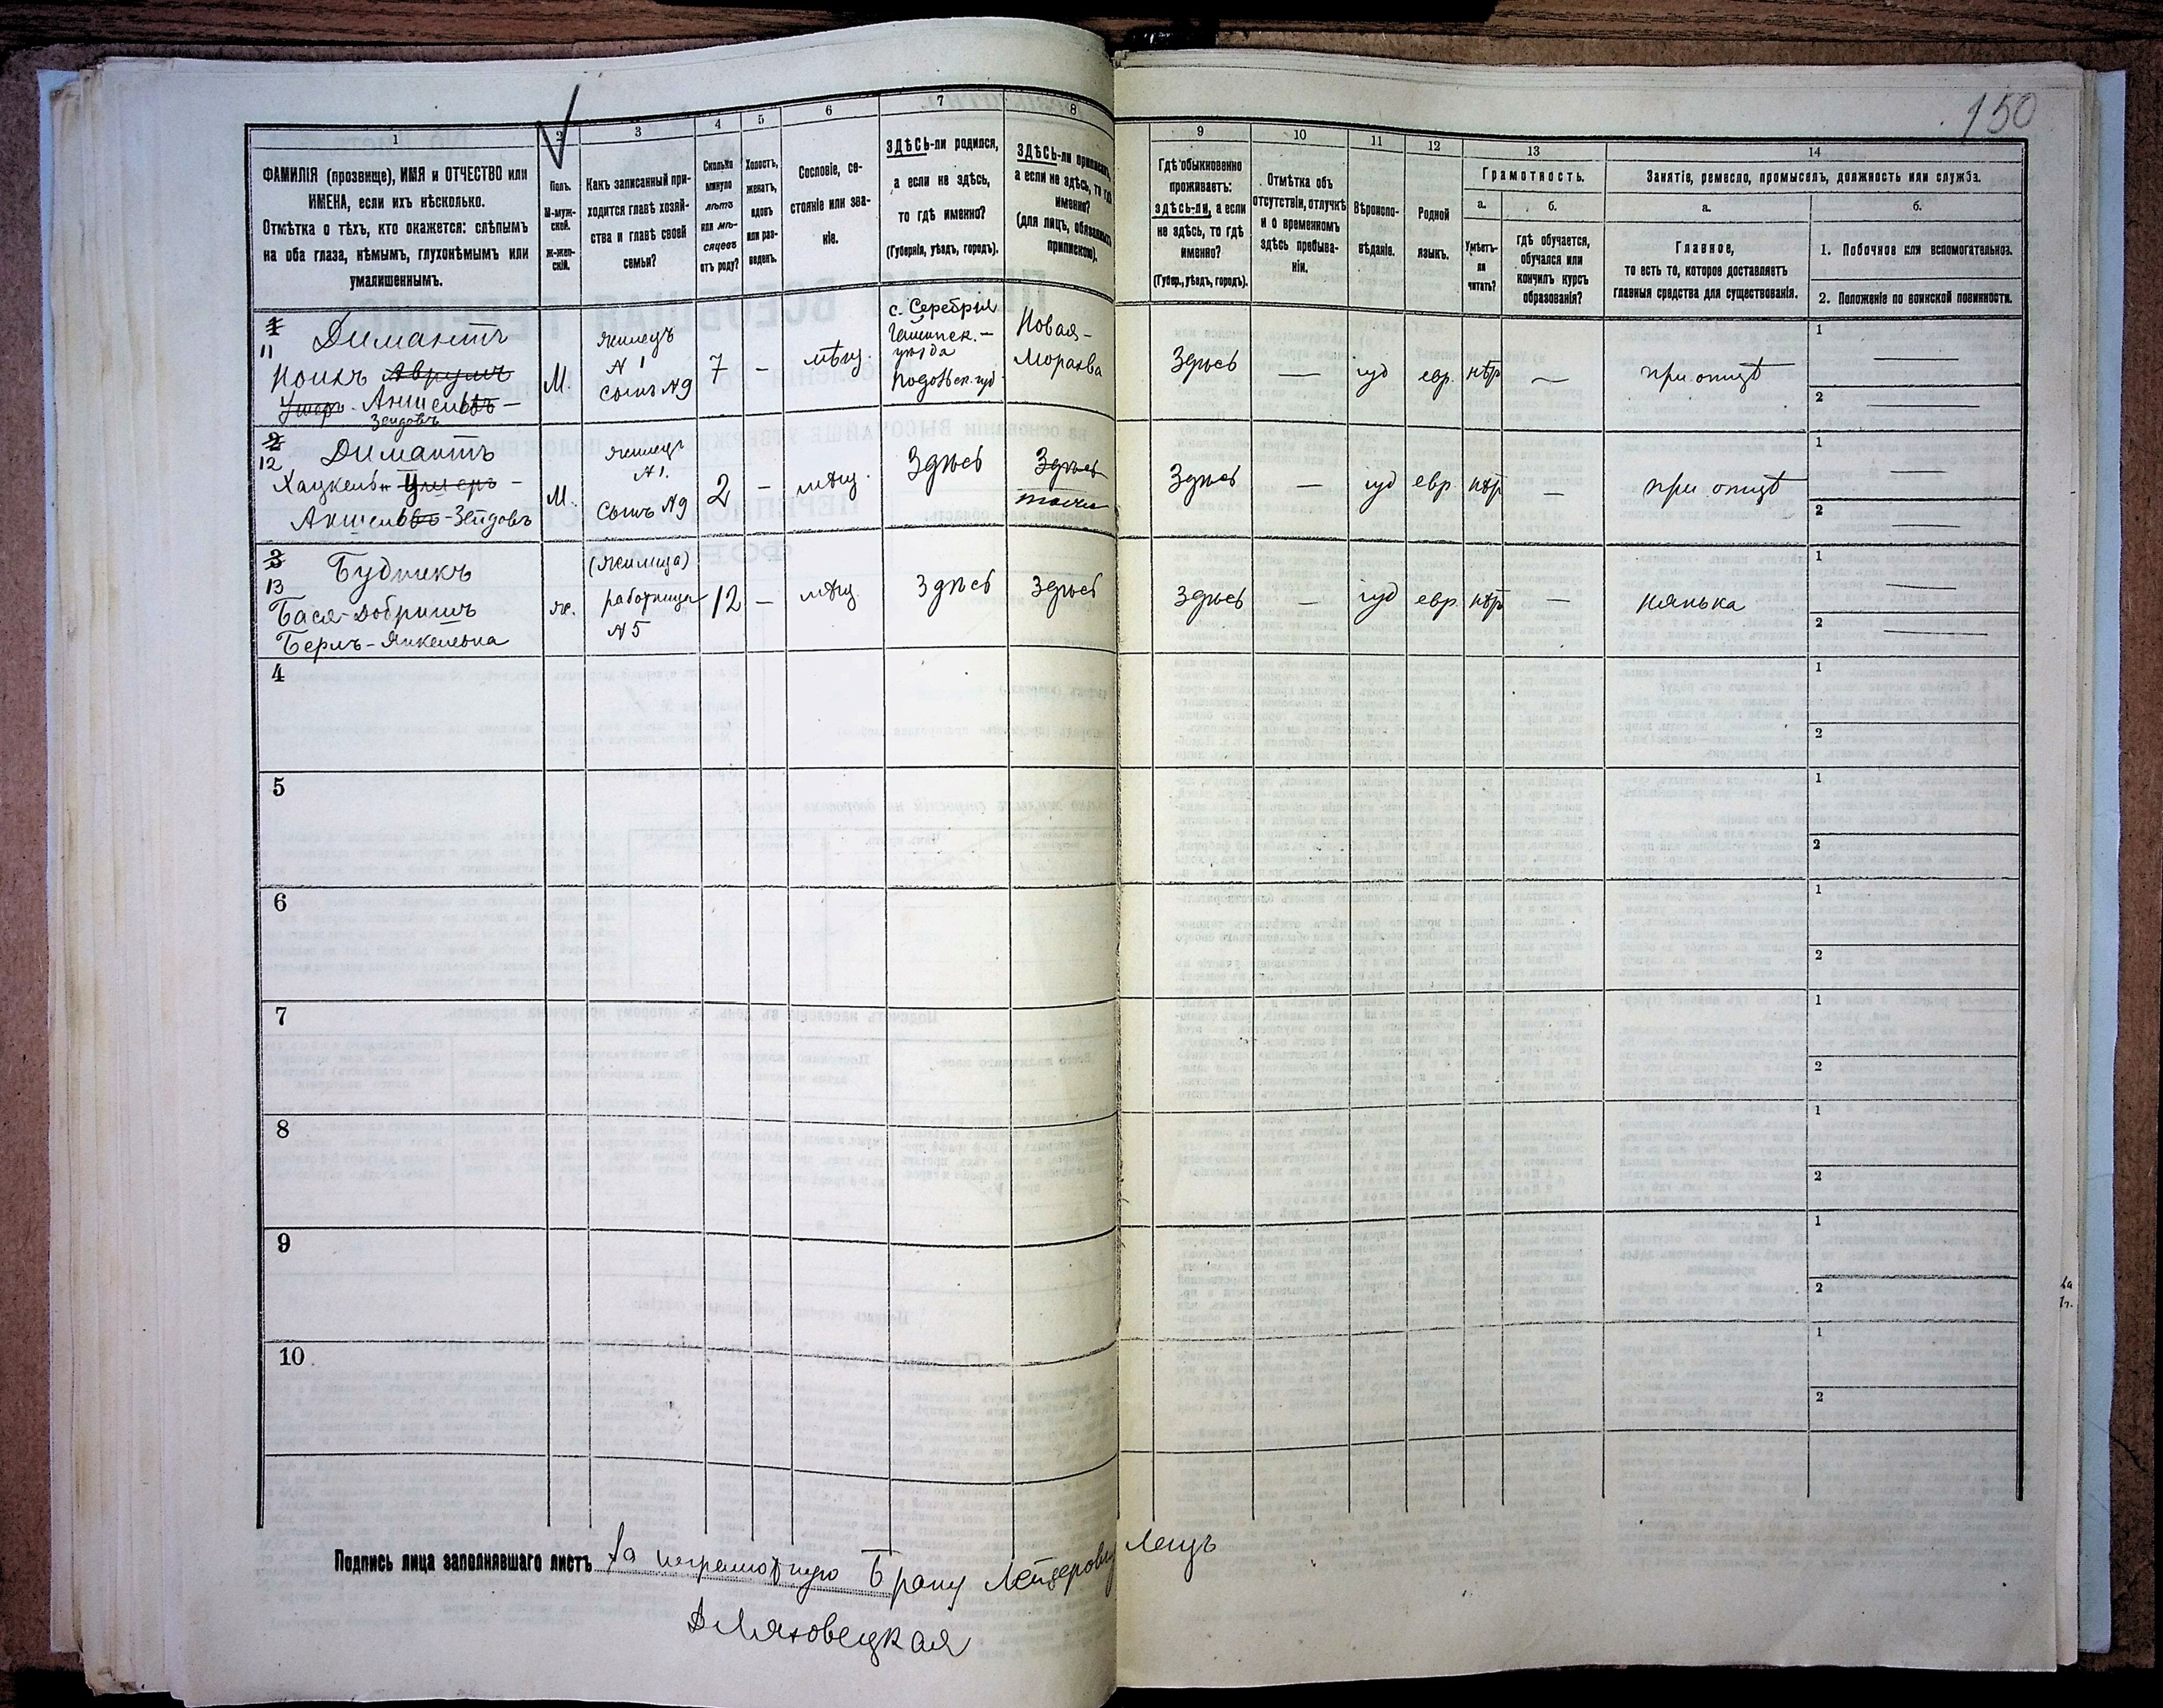 150
1
ФАМИЛІЯ (прозвище), ИМЯ и ОТЧЕСТВО или
ИМЕНА, если ихъ нѣсколько.
Отмѣтка о тѣхъ, кто окажется: слѣпымъ
на оба глаза, нѣмымъ, глухонѣмымъ или
умалишеннымъ.
2
Полъ.
М-муж-
ской.
ж-жен-
скій.
3
Какъ записанный при-
ходится главѣ хозяй-
ства и главѣ своей
семьи?
4
Сколько
минуло
лѣтъ
или мѣ-
сяцевъ
отъ роду?
5
Холостъ,
женатъ,
вдовъ
или раз-
веденъ.
6
Сословіе, со-
стояніе или зва-
ніе.
7
ЗДѢСЬ-ли родился,
а если не здѣсь,
то гдѣ именно?
(Губернія, уѣздъ, городъ).
8
ЗДѢСЬ-ли приписанъ,
а если не здѣсь, то гдѣ
именно?
(для лицъ, обязанныхъ
припискою).
9
Гдѣ обыкновенно
проживаетъ:
здѣсь-ли, а если
не здѣсь, то гдѣ
именно?
(Губер., уѣздъ, городъ).
10
Отмѣтка объ
отсутствіи, отлучкѣ
и о временномъ
здѣсь пребыва-
ніи.
11
Вѣроиспо-
вѣданіе.
12
Родной
языкъ.
13
Грамотность.
а.
Умѣетъ-
ли
читать?
б.
Гдѣ обучается,
обучался или
кончилъ курсъ
образованія?
14
Занятіе, ремесло, промыселъ, должность или служба.
а.
Главное,
то есть то, которое доставляетъ
главныя средства для существованія.
б.
1. Побочное или вспомогательное.
2. Положеніе по воинской повинности.
1
11
Димантъ
Аврумъ
Аншель
Зейдовъ
М.
жилецъ
N 1
сынъ N9
7
-
мѣщ.
с. Серебрія
уѣзда
Новая-
Здѣсь
—
іуд
евр.
нѣт
—
при отцѣ
1
—
2
—
2
12
Димантъ
Хацкель
Аншель-Зейдовъ
М.
жилецъ
N 1.
Сынъ N9
2
-
мѣщ.
Здѣсь
Здѣсь
Здѣсь
—
іуд
евр.
нѣт
—
при отцѣ
1
—
2
—
3
13
Будникъ
Бася-Добришъ
Берлъ-Янкелевна
ж.
(жилица)
работница
N 5
12
—
мѣщ
Здѣсь
Здѣсь
Здѣсь
—
іуд
евр.
нѣт
—
нянька
1
—
2
—
4
1
2
5
1
2
6
1
2
7
1
2
8
1
2
9
1
2
10
1
2
Подпись лица заполнявшаго листъ За неграмотную
Ляховецкая